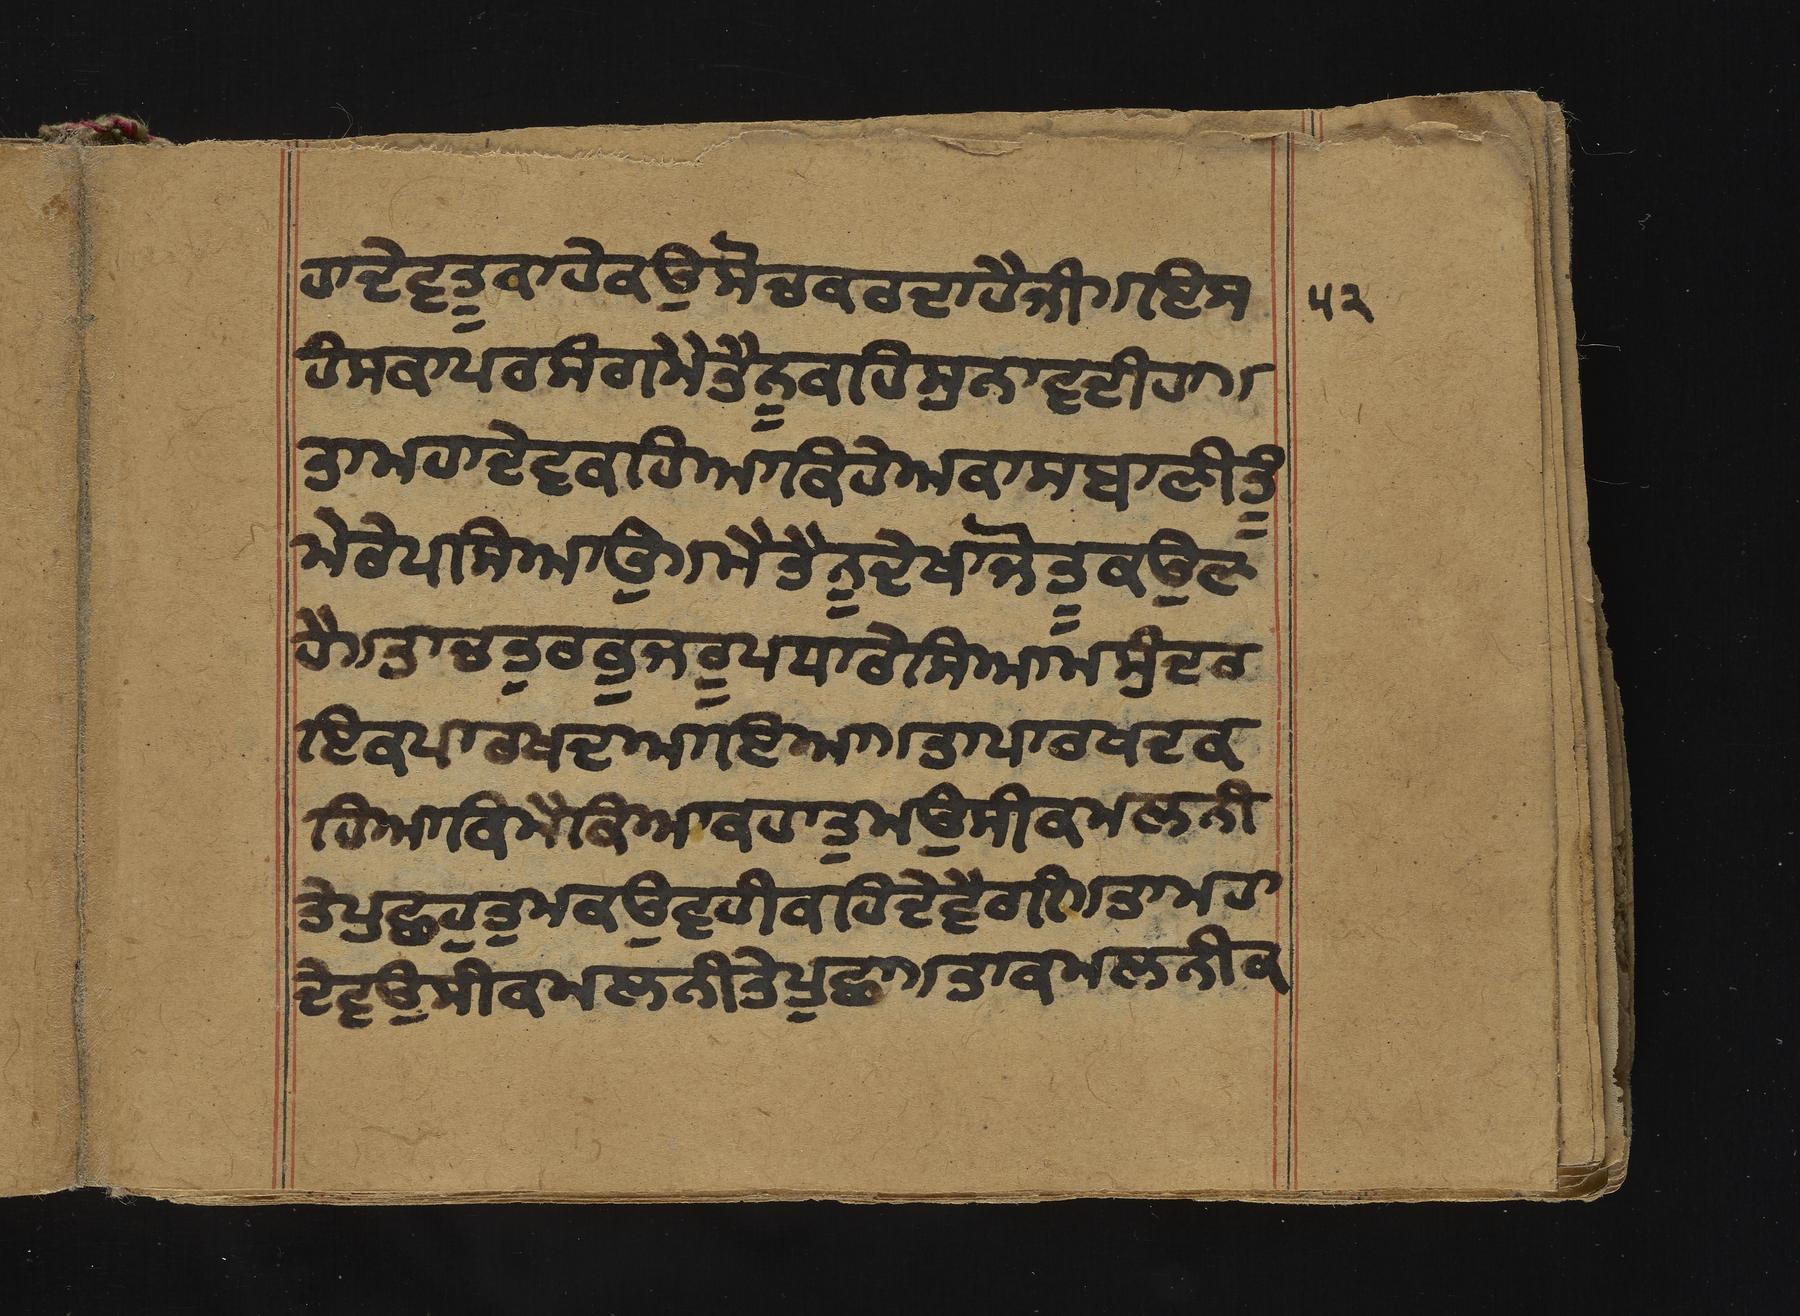 ਹਾਦੇਵਤੂਕਾਹੇਕਉਸੋਚਕਰਦਾਹੈਜੀ॥ਇਸ ੫੨
ਹੰਸਕਾਪਰਸੰਗਮੈਤੈਨੂਕਹਿਸੁਨਾਵਦੀਹਾ॥
ਤਾਮਹਾਦੇਵਕਹਿਆਕਿਹੇਅਕਾਸਬਾਣੀਤੂੰ
ਮੇਰੇਪਾਸਿਆਉ॥ਮੈਤੈਨੁਦੇਖਾਜੋਤੂਕਉਣ
ਹੈ॥ਤਾਚਤੁਰਭੂਜਰੂਪਧਾਰੇਸਿਆਮਸੁੰਦਰ
ਇਕਪਾਰਖਦਆਇਆ॥ਤਾਪਾਰਖਦਕ
ਹਿਆਕਿਮੈਕਿਆਕਹਾਤੁਮਉਸੀਕਮਲਨੀ
ਤੇਪੁਛਹੁਤੁਮਕਉਵਹੀਕਹਿਦੇਵੈਗੀ॥ਤਾਮਹਾ
ਦੇਵਉਸੀਕਮਲਨੀਤੇਪੁਛਾ॥ਤਾਕਮਲਨੀਕ